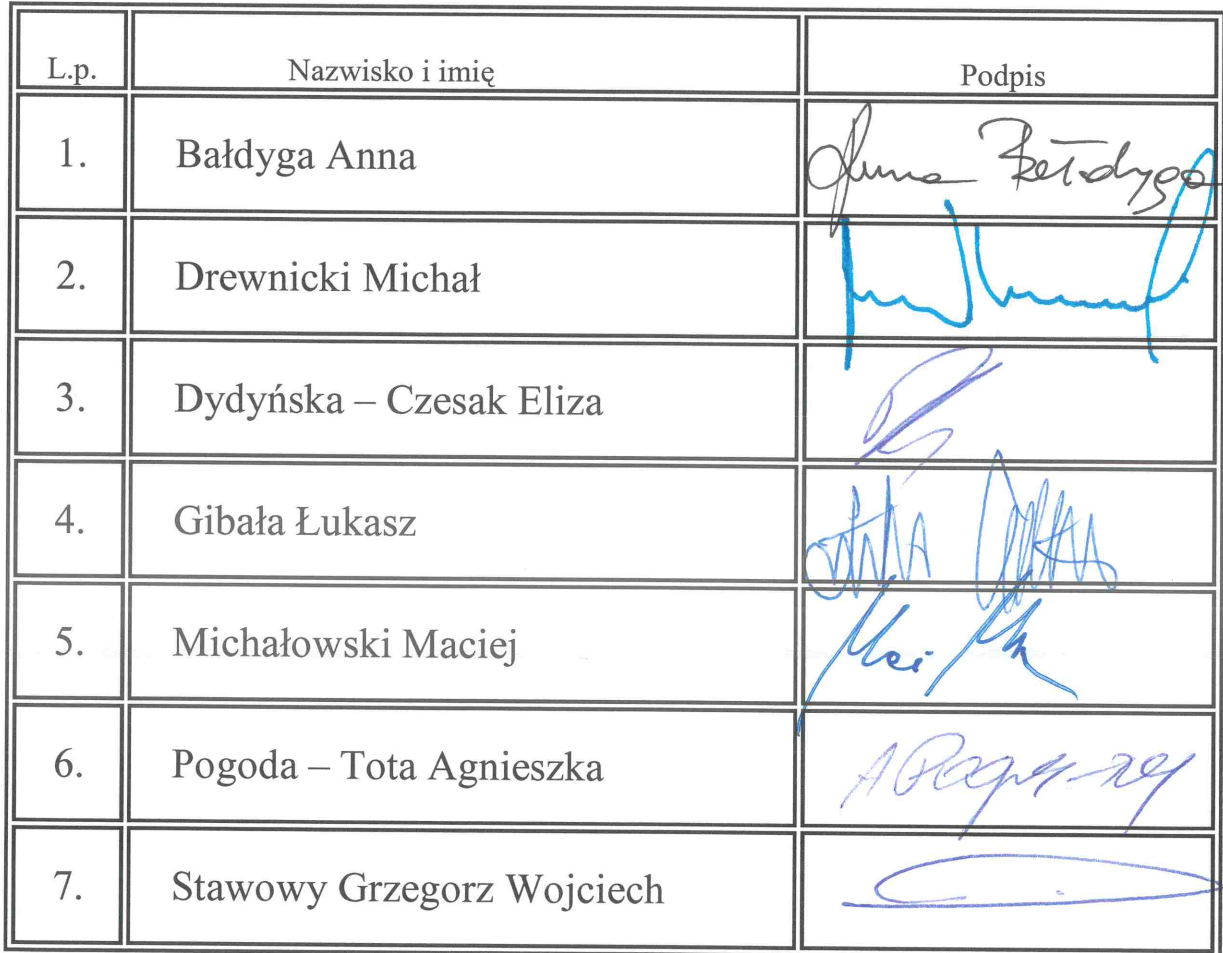 L.p. Nazwisko i imię Podpis
1. Bałdyga Anna Anna Bałdyga
2. Drewnicki Michał
3. Dydyńska – Czesak Eliza
4. Gibała Łukasz
5. Michałowski Maciej
6. Pogoda – Tota Agnieszka
7. Stawowy Grzegorz Wojciech